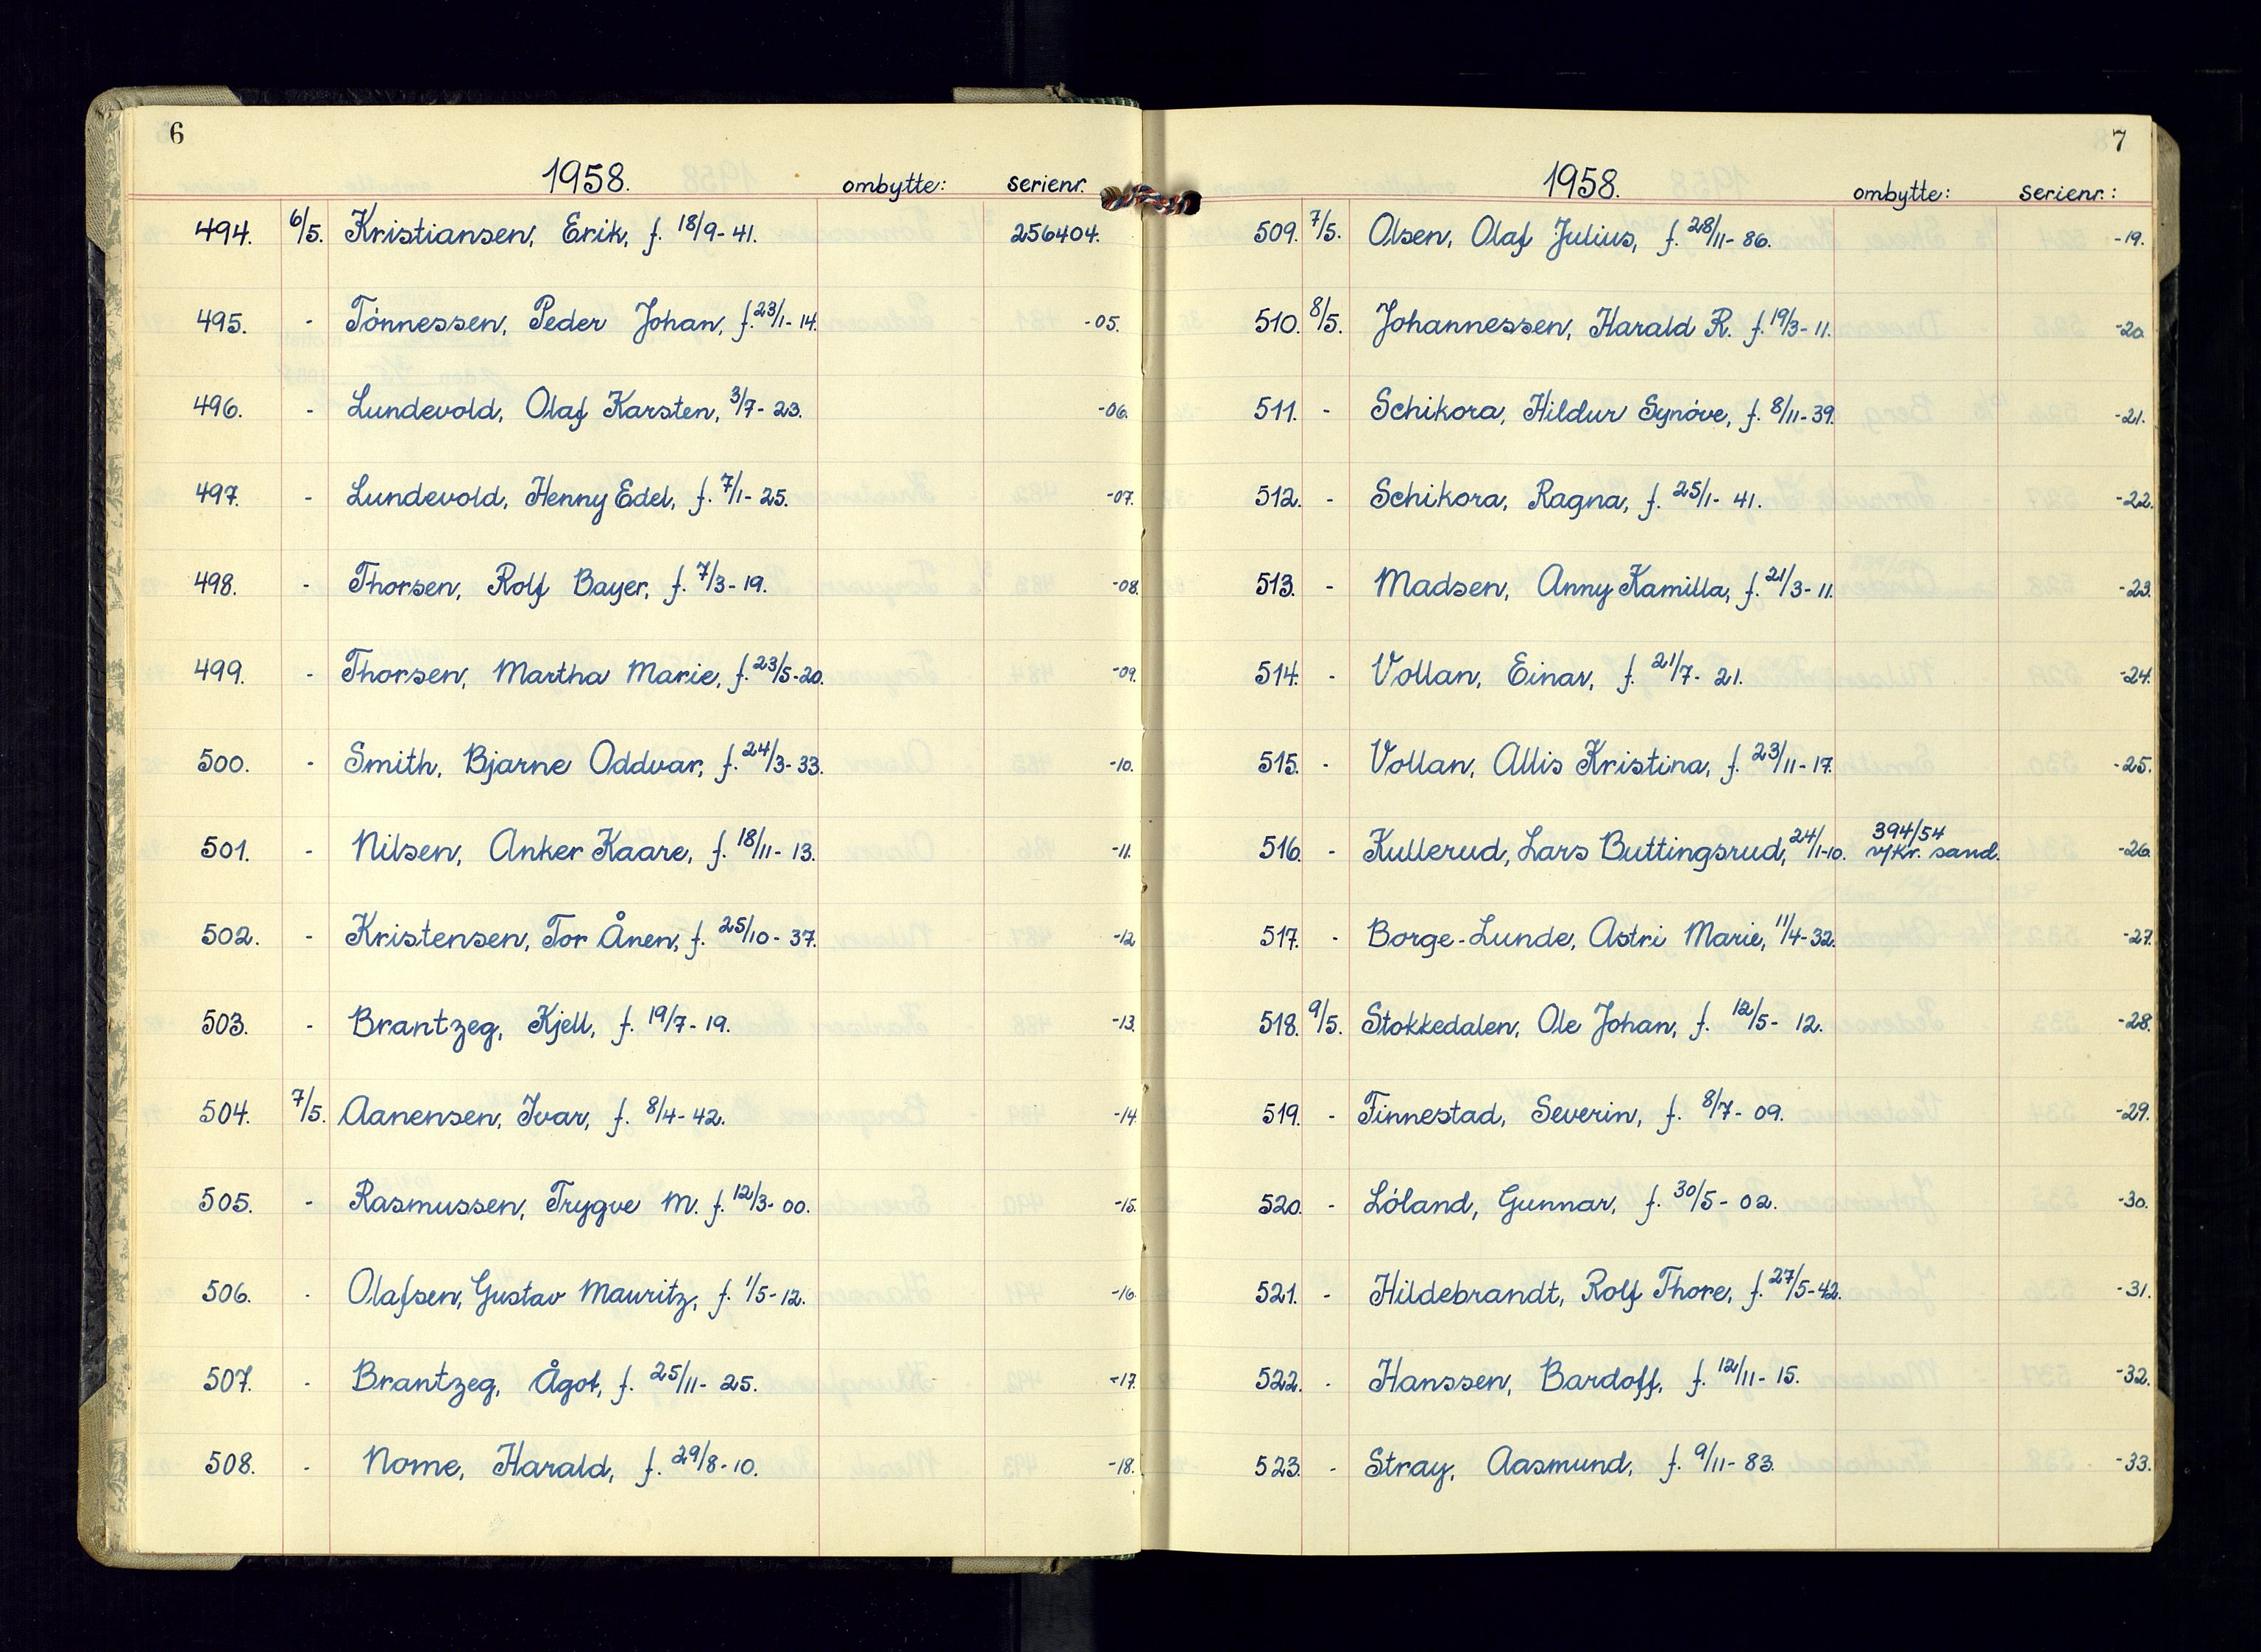 6
1958. ombytte: serienr.
494. 6/5. Kristiansen, Erik, f. 18/9-41. 256404.
495. - Tónnessen, Peder Johan, f. 23/1-14. -05.
496. - Lundevold, Olaf Karsten, 3/7-23. -06.
497. - Lundevold, Henny Edel, f. 7/1-25. -07.
498. - Thorsen, Rolf Bayer, f. 7/3-19. -08.
499. - Thorsen, Martha Marie, f. 23/5-20. -09.
500. - Smith, Bjarne Oddvar, f. 24/3-33. -10.
501. - Nilsen, Anker Kaare, f. 18/11-13. -11.
502. - Kristensen, Tor Ånen, f. 25/10-37. -12
503. - Brantzeg, Kjell, f. 19/7-19. -13.
504. 7/5. Aanensen, Ivar, f. 8/4-42. -14.
505. - Rasmussen, Trygve M. f. 12/3-00. -15.
506. - Olafsen, Gustav Mauritz, f. 1/5-12. -16.
507. - Brantzeg, Ågot, f. 25/11-25. -17.
508. - Nome, Harald, f. 29/8-10. -18.
7
1958. ombytte: serienr.:
509. 7/5. Olsen, Olaf Julius, f. 28/11-86. -19.
510. 8/5. Johannessen, Harald R. f. 19/3-11. -20.
511. - Schikora, Hildur Synóve, f. 8/11-39. -21.
512. - Schikora, Ragna, f. 25/1-41. -22.
513. - Madsen, Anny Kamilla, f. 21/3-11. -23.
514. - Vollan, Einar, f. 21/7-21. -24.
515. - Vollan, Allis Kristina, f. 23/11-17. -25.
516. - Kullerud, Lars Buttingsrud, 24/1-10. 394/54 v/Kr. sand. -26.
517. - Borge-Lunde, Astri Marie, 11/4-32. -27.
518. 9/5. Stokkedalen, Ole Johan, f. 12/5-12. -28.
519. - Finnestad, Severin, f. 8/7-09. -29.
520. - Lóland, Gunnar, f. 30/5-02. -30.
521. - Hildebrandt, Rolf Thore, f. 27/5-42. -31.
522. - Hanssen, Bardoff, f. 12/11-15. -32.
523. - Stray, Aasmund, f. 9/11-83. -33.